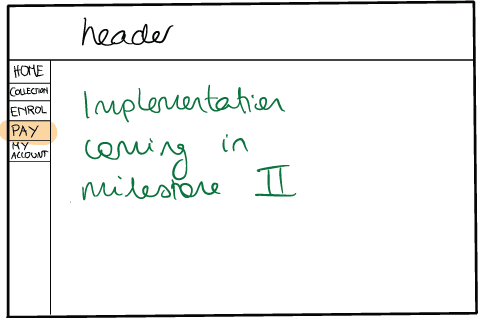 header
HOME
COLLECTION
ENROL
PAY
MY
ACCOUNT
Implementation
coming in
milestone II